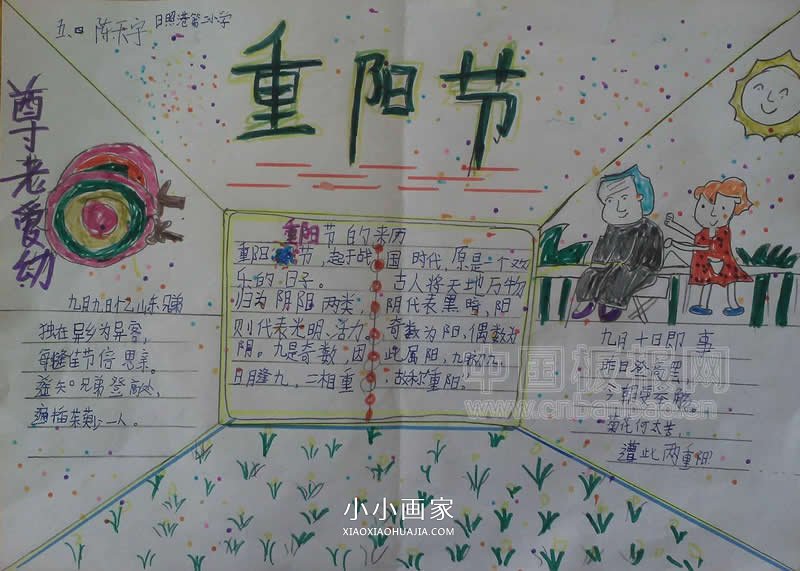 五.四 陈天宇 日照港第二小学
重阳节
尊老爱幼
重阳节的来历
重阳节,起于战国时代,原是一个欢
乐的日子。古人将天地万物
归为阴阳两类,阴代表黑暗,阳
则代表光明、活力。奇数为阳,偶数为
阴。九是奇数,因此属阳,九月初九,
日月逢九,二相重,故称重阳。
九月九日忆山东兄弟
独在异乡为异客,
每逢佳节倍思亲。
遥知兄弟登高处,
遍插茱萸少一人。
九月十日即事
昨日登高罢
今朝更举觞
菊花何太苦,
遭此两重阳
中国板报网
www.cnbanbao.cn
小小画家
XIAOXIAOHUAJIA.COM